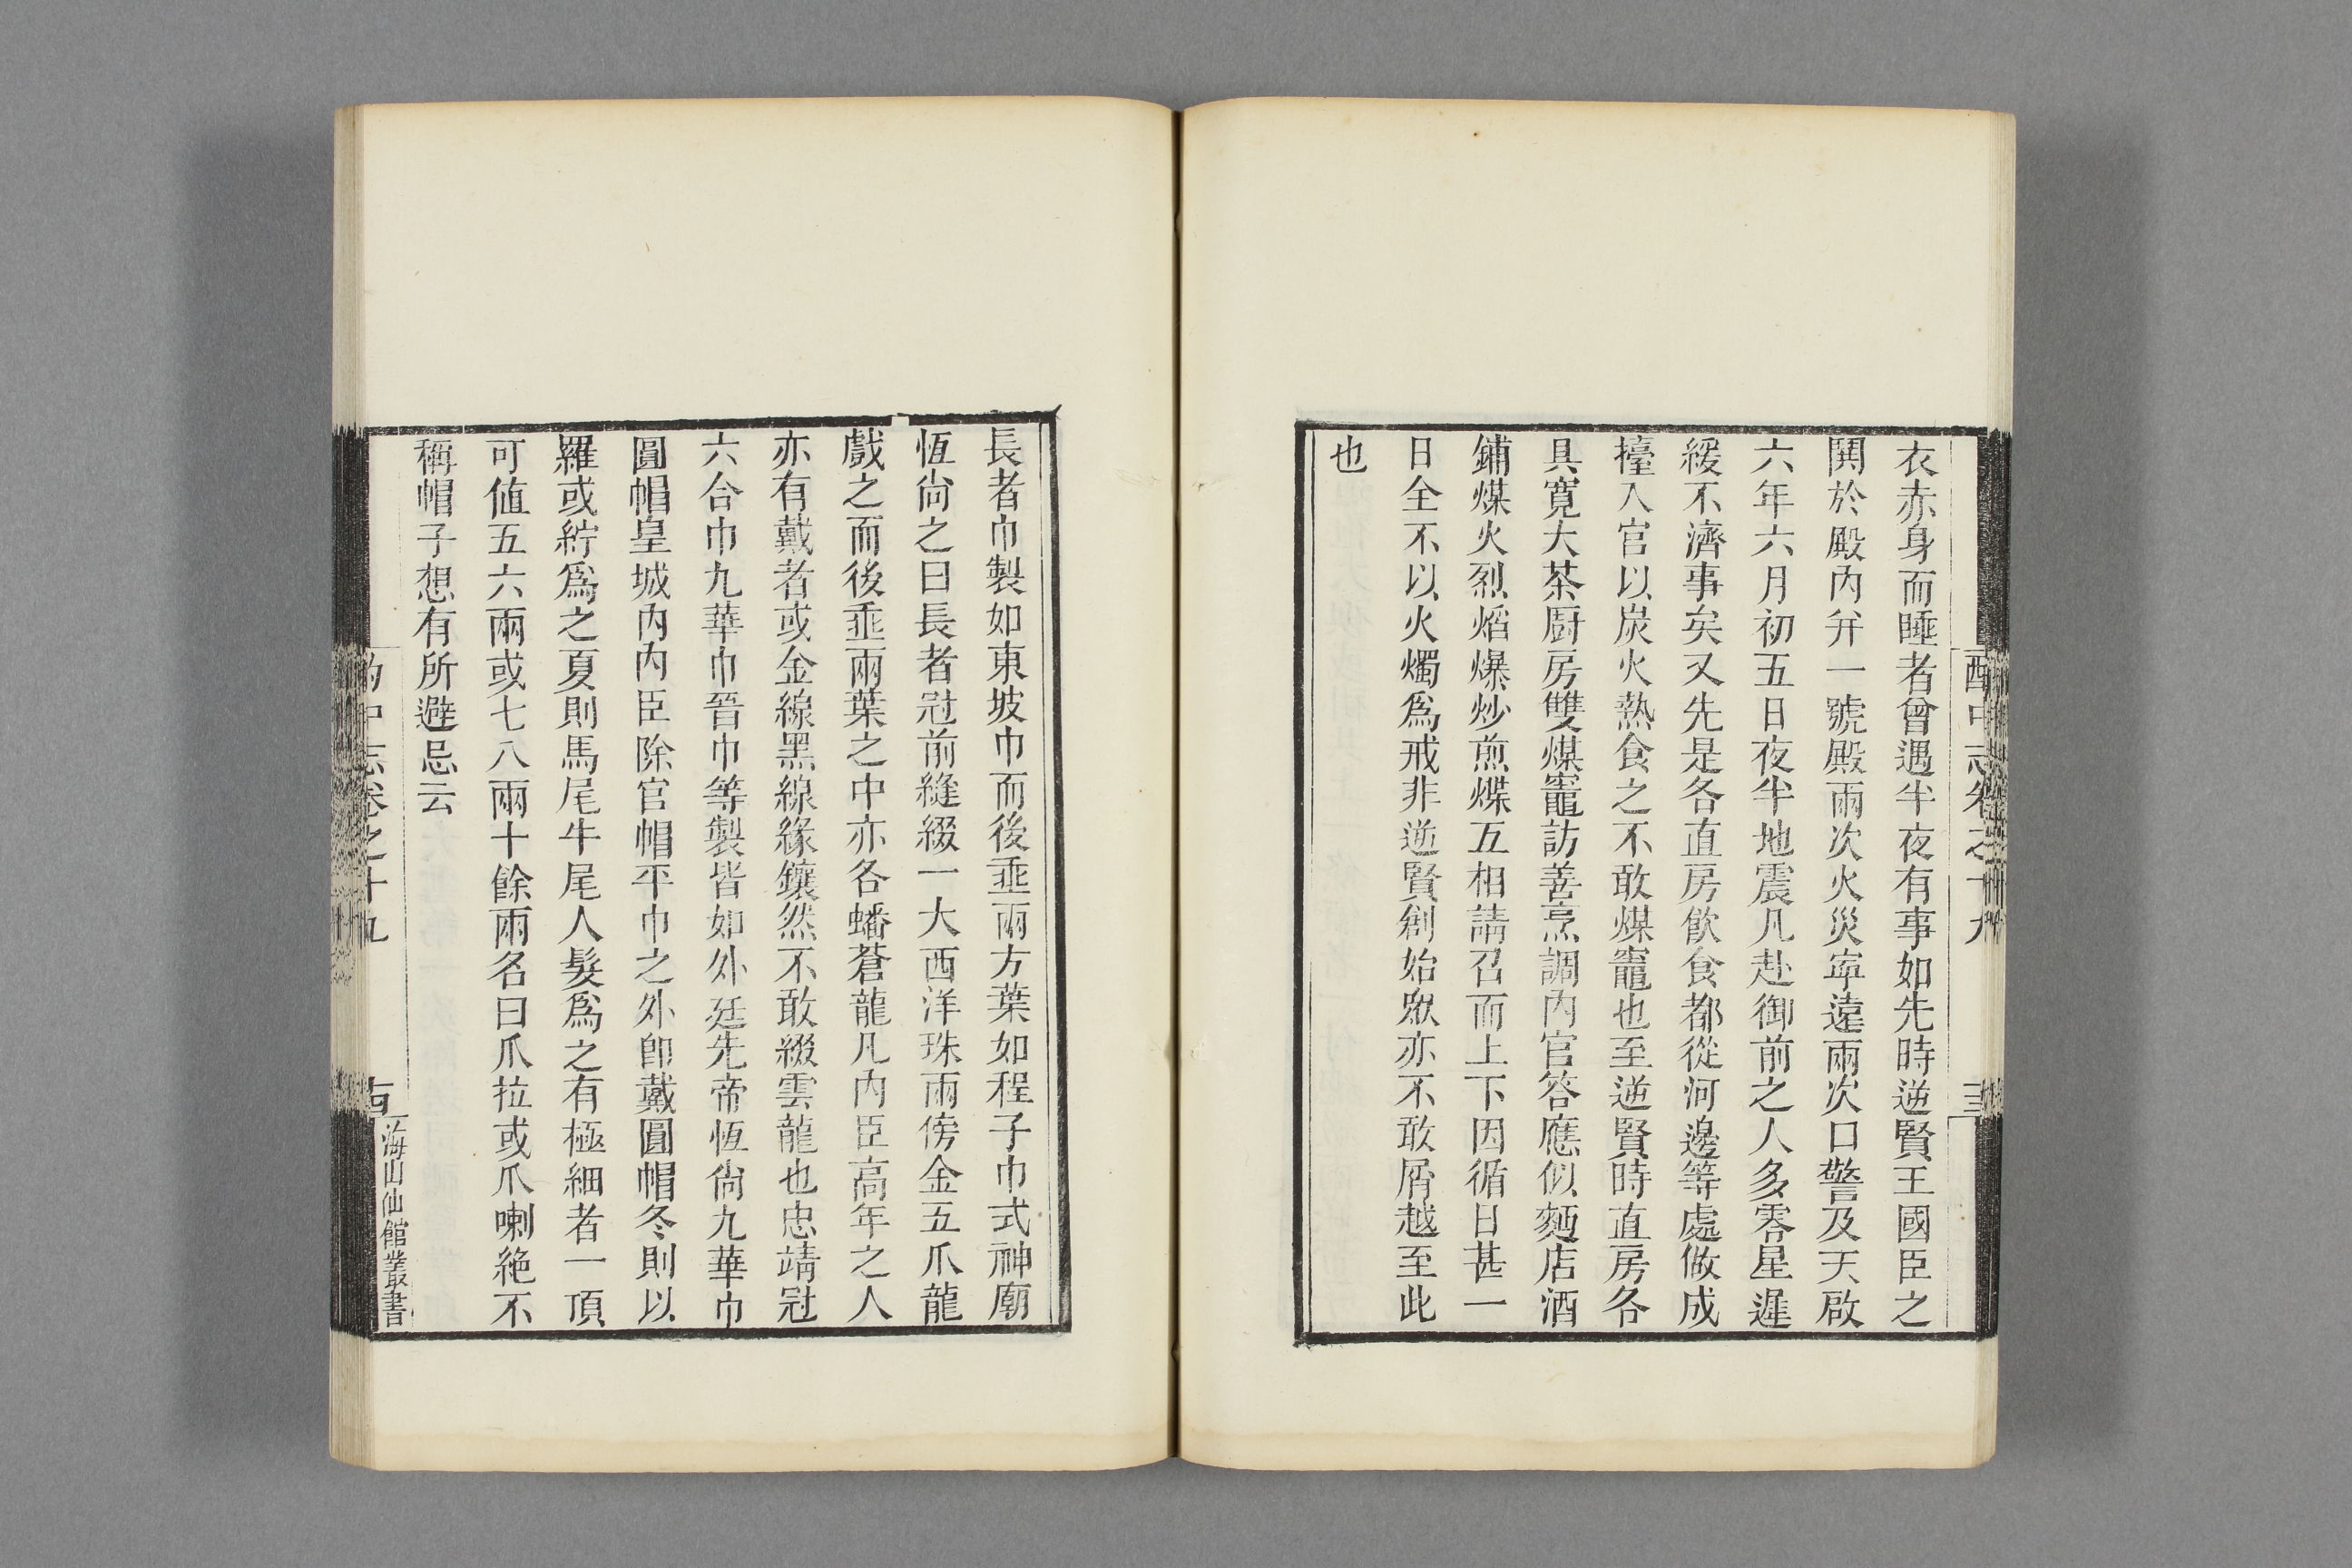 衣赤身而睡者曾遇半夜有事如先時逆賢王國臣之
鬨於殿內弁一號殿兩次火災寧遠兩次口警及天啟
六年六月初五日夜半地震凡赴御前之人多零星遲
緩不濟事矣又先是各直房飲食都從河邊等處做成
擡入官以炭火熱食之不敢煤竈也至逆賢時直房各
具寬大茶厨房雙煤竈訪善烹調內官答應似麪店酒
鋪煤火烈熖爆炒煎煠五相請召而上下因循日甚一
日全不以火燭爲戒非逆賢創始眾亦不敢屑越至此
也
酌中志卷之十九
長者巾製如東坡巾而後垂兩方葉如程子巾式神廟
恆尚之曰長者冠前縫綴一大西洋珠兩傍金五爪龍
戲之而後垂兩葉之中亦各蟠蒼龍凡內臣高年之人
亦有戴者或金線黑線緣鑲然不敢綴雲龍也忠靖冠
六合巾九華巾晉巾等製皆如外廷先帝恆尚九華巾
圓帽皇城內內臣除官帽平巾之外卽戴圓帽冬則以
羅或紵爲之夏則馬尾牛尾人髮爲之有極細者一頂
可値五六兩或七八兩十餘兩名曰爪拉或爪喇絶不
稱帽子想有所避忌云
酌中志卷之十九
海山仙館叢書